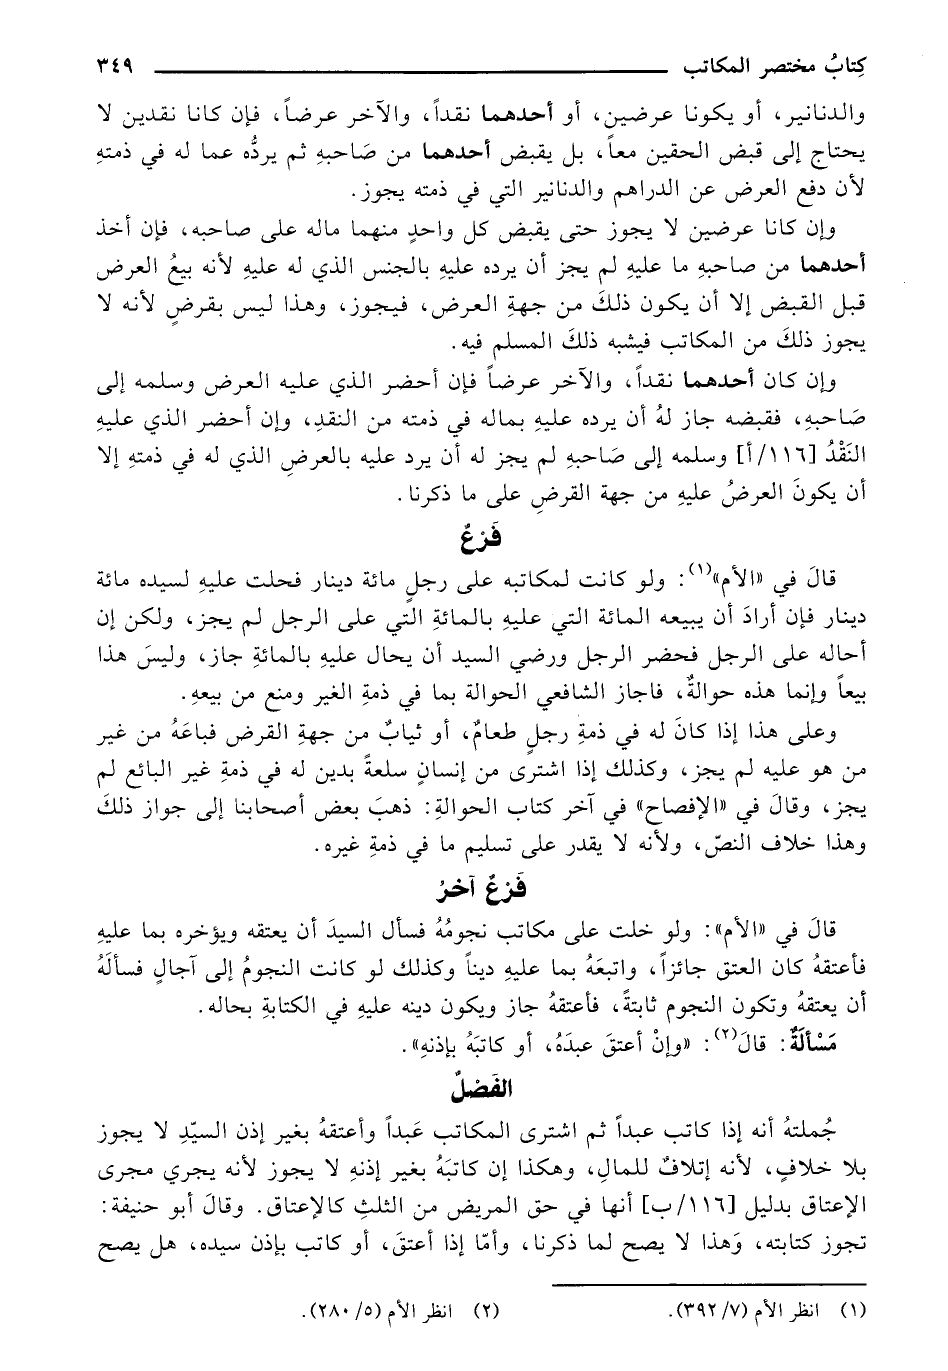 كِتابُ مختصر المكاتب ٣٤٩
والدنانير، أو يكونا عرضين، أو أحدهما نقداً، والآخر عرضاً، فإن كانا نقدين لا
يحتاج إلى قبض الحقين معاً، بل يقبض أحدهما من صَاحبهِ ثم يردُّه عما له في ذمتهِ
لأن دفع العرض عن الدراهم والدنانير التي في ذمته يجوز.
وإن كانا عرضين لا يجوز حتى يقبض كل واحدٍ منهما ماله على صاحبه، فإن أخذ
أحدهما من صاحبهِ ما عليهِ لم يجز أن يرده عليهِ بالجنس الذي له عليهِ لأنه بيعُ العرض
قبل القبض إلا أن يكون ذلكَ من جهةِ العرض، فيجوز، وهذا ليس بقرضٍ لأنه لا
يجوز ذلكَ من المكاتب فيشبه ذلكَ المسلم فيه.
وإن كان أحدهما نقداً، والآخر عرضاً فإن أحضر الذي عليه العرض وسلمه إلى
صَاحبهِ، فقبضه جاز لهُ أن يرده عليهِ بماله في ذمته من النقدِ، وإن أحضر الذي عليهِ
النَقْدُ [١١٦/أ] وسلمه إلى صَاحبهِ لم يجز له أن يرد عليه بالعرضِ الذي له في ذمتهِ إلا
أن يكونَ العرضُ عليهِ من جهة القرضِ على ما ذكرنا.
فَرْعٌ
قالَ في «الأم»(١): ولو كانت لمكاتبه على رجلٍ مائة دينار فحلت عليهِ لسيده مائة
دينار فإن أرادَ أن يبيعه المائة التي عليهِ بالمائةِ التي على الرجل لم يجز، ولكن إن
أحاله على الرجل فحضر الرجل ورضي السيد أن يحال عليهِ بالمائةِ جاز، وليسَ هذا
بيعاً وإنما هذه حوالةٌ، فاجاز الشافعي الحوالة بما في ذمةِ الغير ومنع من بيعهِ.
وعلى هذا إذا كانَ له في ذمةِ رجلٍ طعامٌ، أو ثيابٌ من جهةِ القرض فباعَهُ من غير
من هو عليه لم يجز، وكذلك إذا اشترى من إنسانٍ سلعةً بدين له في ذمةِ غير البائع لم
يجز، وقالَ في «الإفصاح» في آخر كتاب الحوالةِ: ذهبَ بعض أصحابنا إلى جواز ذلكَ
وهذا خلاف النصّ، ولأنه لا يقدر على تسليم ما في ذمةِ غيره.
فَرْعٌ آخرُ
قالَ في «الأم»: ولو خلت على مكاتب نجومُهُ فسأل السيدَ أن يعتقه ويؤخره بما عليهِ
فأعتقهُ كان العتق جائزاً، واتبعَهُ بما عليهِ ديناً وكذلك لو كانت النجومُ إلى آجالٍ فسألَهُ
أن يعتقهُ وتكون النجوم ثابتةً، فأعتقهُ جاز ويكون دينه عليهِ في الكتابةِ بحاله.
مَسْألَةٌ: قالَ(٢): «وإنْ أعتقَ عبدَهُ، أو كاتبَهُ بإذنهِ».
الفَصْلُ
جُملتهُ أنه إذا كاتب عبداً ثم اشترى المكاتب عَبداً وأعتقهُ بغير إذن السيّدِ لا يجوز
بلا خلافٍ، لأنه إتلافٌ للمالِ، وهكذا إن كاتبَهُ بغير إذنهِ لا يجوز لأنه يجري مجرى
الإعتاق بدليل [١١٦/ب] أنها في حق المريض من الثلثِ كالإعتاق. وقالَ أبو حنيفة:
تجوز كتابته، وَهذا لا يصح لما ذكرنا، وأمّا إذا أعتقَ، أو كاتب بإذن سيده، هل يصح
(١) انظر الأم (٧/ ٣٩٢). (٢) انظر الأم (٥/ ٢٨٠).